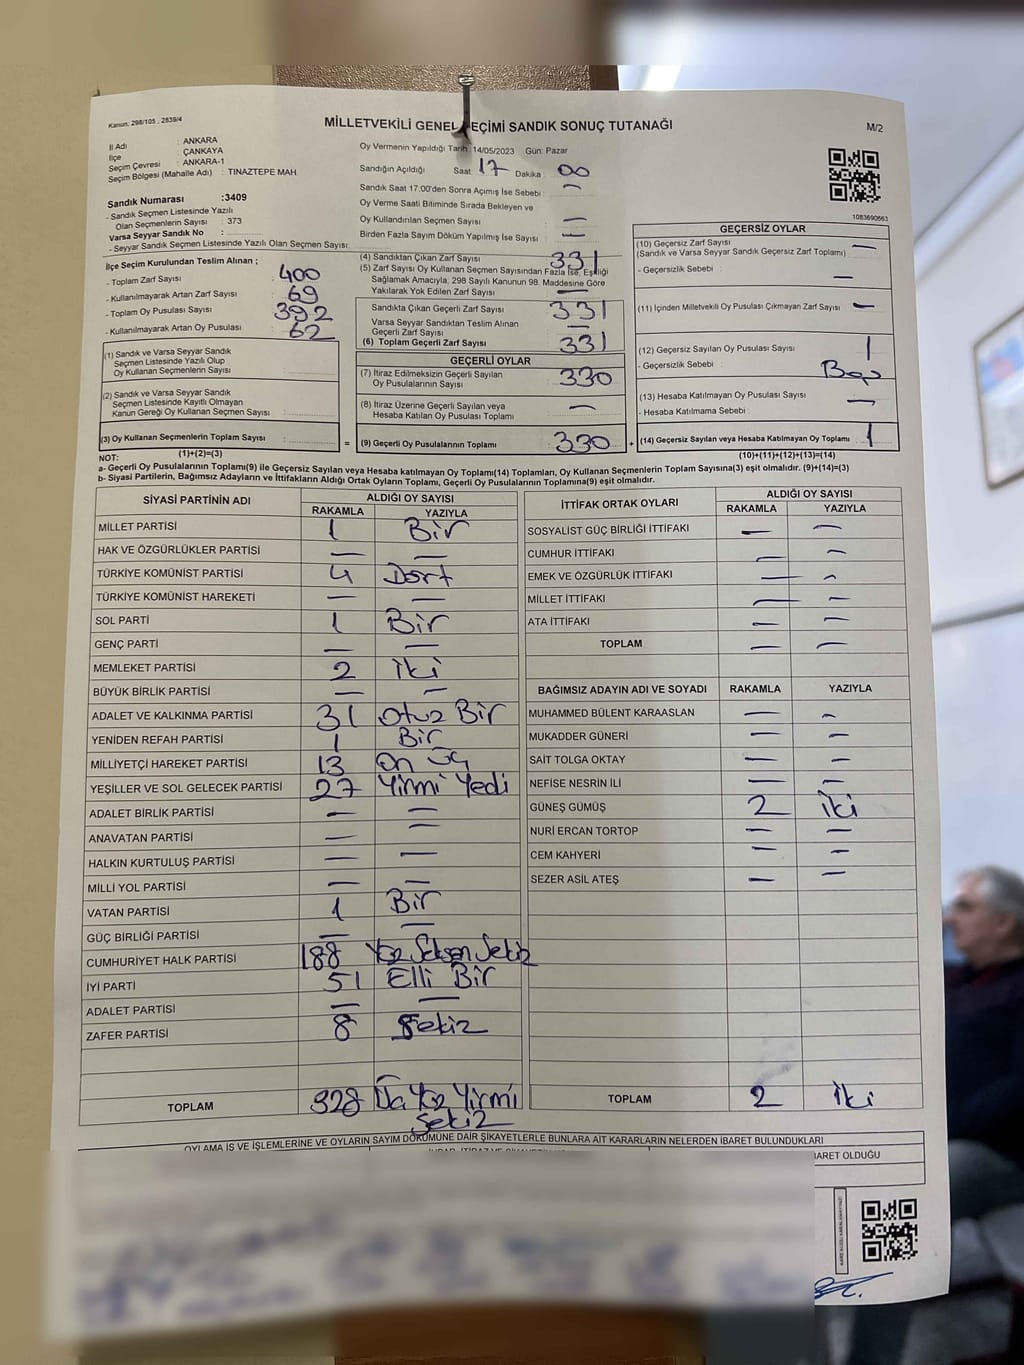 Kanun; 298/105 , 2839/4
MİLLETVEKİLİ GENEL SEÇİMİ SANDIK SONUÇ TUTANAĞI
M/2
İl Adı : ANKARA
İlçe : ÇANKAYA
Seçim Çevresi : ANKARA-1
Seçim Bölgesi (Mahalle Adı) : TINAZTEPE MAH
Sandık Numarası :3409
- Sandık Seçmen Listesinde Yazılı
Olan Seçmenlerin Sayısı : 373
Varsa Seyyar Sandık No :
- Seyyar Sandık Seçmen Listesinde Yazılı Olan Seçmen Sayısı:
Oy Vermenin Yapıldığı Tarih: 14/05/2023 Gün: Pazar
Sandığın Açıldığı Saat: 17 Dakika : 00
Sandık Saat 17:00'den Sonra Açımış İse Sebebi : —
Oy Verme Saati Bitiminde Sırada Bekleyen ve
Oy Kullandırılan Seçmen Sayısı : —
Birden Fazla Sayım Döküm Yapılmış İse Sayısı : —
1083690663
İlçe Seçim Kurulundan Teslim Alınan ;
- Toplam Zarf Sayısı : 400
- Kullanılmayarak Artan Zarf Sayısı : 69
- Toplam Oy Pusulası Sayısı : 392
- Kullanılmayarak Artan Oy Pusulası : 62
(1) Sandık ve Varsa Seyyar Sandık
Seçmen Listesinde Yazılı Olup
Oy Kullanan Seçmenlerin Sayısı :
(2) Sandık ve Varsa Seyyar Sandık
Seçmen Listesinde Kayıtlı Olmayan
Kanun Gereği Oy Kullanan Seçmen Sayısı :
(3) Oy Kullanan Seçmenlerin Toplam Sayısı :
(1)+(2)=(3)
(4) Sandıktan Çıkan Zarf Sayısı : 331
(5) Zarf Sayısı Oy Kullanan Seçmen Sayısından Fazla İse, Eşitliği
Sağlamak Amacıyla, 298 Sayılı Kanunun 98. Maddesine Göre
Yakılarak Yok Edilen Zarf Sayısı : —
Sandıkta Çıkan Geçerli Zarf Sayısı : 331
Varsa Seyyar Sandıktan Teslim Alınan
Geçerli Zarf Sayısı : —
(6) Toplam Geçerli Zarf Sayısı : 331
GEÇERLİ OYLAR
(7) İtiraz Edilmeksizin Geçerli Sayılan
Oy Pusulalarının Sayısı : 330
(8) İtiraz Üzerine Geçerli Sayılan veya
Hesaba Katılan Oy Pusulası Toplamı : —
= (9) Geçerli Oy Pusulalarının Toplamı : 330 +
GEÇERSİZ OYLAR
(10) Geçersiz Zarf Sayısı : —
(Sandık ve Varsa Seyyar Sandık Geçersiz Zarf Toplamı)
- Geçersizlik Sebebi : —
(11) İçinden Milletvekili Oy Pusulası Çıkmayan Zarf Sayısı : —
(12) Geçersiz Sayılan Oy Pusulası Sayısı : 1
- Geçersizlik Sebebi :
(13) Hesaba Katılmayan Oy Pusulası Sayısı : —
- Hesaba Katılmama Sebebi :
(14) Geçersiz Sayılan veya Hesaba Katılmayan Oy Toplamı : 1
(10)+(11)+(12)+(13)=(14)
NOT:
a- Geçerli Oy Pusulalarının Toplamı(9) ile Geçersiz Sayılan veya Hesaba katılmayan Oy Toplamı(14) Toplamları, Oy Kullanan Seçmenlerin Toplam Sayısına(3) eşit olmalıdır. (9)+(14)=(3)
b- Siyasi Partilerin, Bağımsız Adayların ve İttifakların Aldığı Ortak Oyların Toplamı, Geçerli Oy Pusulalarının Toplamına(9) eşit olmalıdır.
SİYASİ PARTİNİN ADI ALDIĞI OY SAYISI
RAKAMLA YAZIYLA
MİLLET PARTİSİ 1 Bir
HAK VE ÖZGÜRLÜKLER PARTİSİ — —
TÜRKİYE KOMÜNİST PARTİSİ 4 Dört
TÜRKİYE KOMÜNİST HAREKETİ — —
SOL PARTİ 1 Bir
GENÇ PARTİ — —
MEMLEKET PARTİSİ 2 iki
BÜYÜK BİRLİK PARTİSİ — —
ADALET VE KALKINMA PARTİSİ 31 Otuz Bir
YENİDEN REFAH PARTİSİ 1 Bir
MİLLİYETÇİ HAREKET PARTİSİ 13 On Üç
YEŞİLLER VE SOL GELECEK PARTİSİ 27 Yirmi Yedi
ADALET BİRLİK PARTİSİ — —
ANAVATAN PARTİSİ — —
HALKIN KURTULUŞ PARTİSİ — —
MİLLİ YOL PARTİSİ — —
VATAN PARTİSİ 1 Bir
GÜÇ BİRLİĞİ PARTİSİ — —
CUMHURİYET HALK PARTİSİ 188 Yüz Seksen Sekiz
İYİ PARTİ 51 Elli Bir
ADALET PARTİSİ — —
ZAFER PARTİSİ 8 Sekiz
TOPLAM 328 Üç Yüz Yirmi
Sekiz
İTTİFAK ORTAK OYLARI ALDIĞI OY SAYISI
RAKAMLA YAZIYLA
SOSYALİST GÜÇ BİRLİĞİ İTTİFAKI — —
CUMHUR İTTİFAKI — —
EMEK VE ÖZGÜRLÜK İTTİFAKI — —
MİLLET İTTİFAKI — —
ATA İTTİFAKI — —
TOPLAM — —
BAĞIMSIZ ADAYIN ADI VE SOYADI RAKAMLA YAZIYLA
MUHAMMED BÜLENT KARAASLAN — —
MUKADDER GÜNERİ — —
SAİT TOLGA OKTAY — —
NEFİSE NESRİN İLİ — —
GÜNEŞ GÜMÜŞ 2 iki
NURİ ERCAN TORTOP — —
CEM KAHYERİ — —
SEZER ASİL ATEŞ — —
TOPLAM 2 iki
OYLAMA İŞ VE İŞLEMLERİNE VE OYLARIN SAYIM DÖKÜMÜNE DAİR ŞİKAYETLERLE BUNLARA AİT KARARLARIN NELERDEN İBARET BULUNDUKLARI
İBARET OLDUĞU